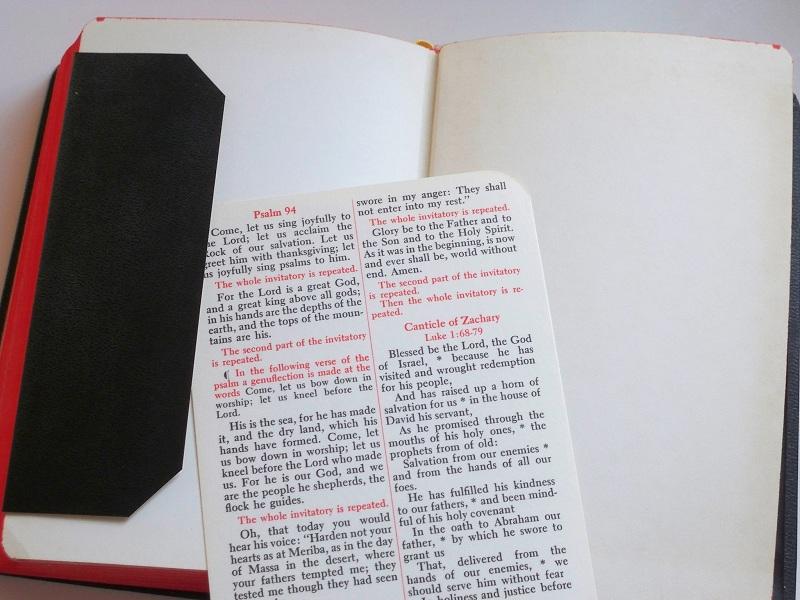 Psalm 94
Come, let us sing joyfully to
Lord; let us acclaim the
Rock of our salvation. Let us
greet him with thanksgiving; let
us joyfully sing psalms to him.
The whole invitatory is repeated.
For the Lord is a great God,
and a great king above all gods;
in his hands are the depths of the
earth, and the tops of the moun-
tains are his.
The second part of the invitatory
is repeated.
In the following verse of the
psalm a genuflection is made at the
words Come, let us bow down in
worship; let us kneel before the
Lord.
His is the sea, for he has made
it, and the dry land, which his
hands have formed. Come, let
us bow down in worship; let us
kneel before the Lord who made
us. For he is our God, and we
are the people he shepherds, the
flock he guides.
The whole invitatory is repeated.
Oh, that today you would
hear his voice: "Harden not your
hearts as at Meriba, as in the day
of Massa in the desert, where
your fathers tempted me; they
tested me though they had seen
swore in my anger: They shall
not enter into my rest."
The whole invitatory is repeated.
Glory be to the Father and to
the Son and to the Holy Spirit.
As it was in the beginning, is now
and ever shall be, world without
end. Amen.
The second part of the invitatory
is repeated.
Then the whole invitatory is re-
peated.
Canticle of Zachary
Luke 1:68-79
Blessed be the Lord, the God
of Israel, * because he has
visited and wrought redemption
for his people,
And has raised up a horn of
salvation for us * in the house of
David his servant,
As he promised through the
mouths of his holy ones, * the
prophets from of old:
Salvation from our enemies *
and from the hands of all our
foes.
He has fulfilled his kindness
to our fathers, * and been mind-
ful of his holy covenant
In the oath to Abraham our
father, * by which he swore to
grant us
That, delivered from the
hands of our enemies, * we
should serve him without fear
In holiness and justice before